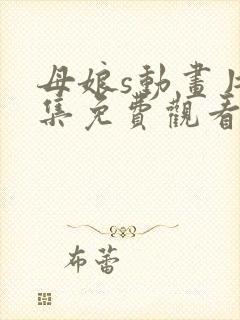 母娘s動畫片
集免費觀看
布蕾